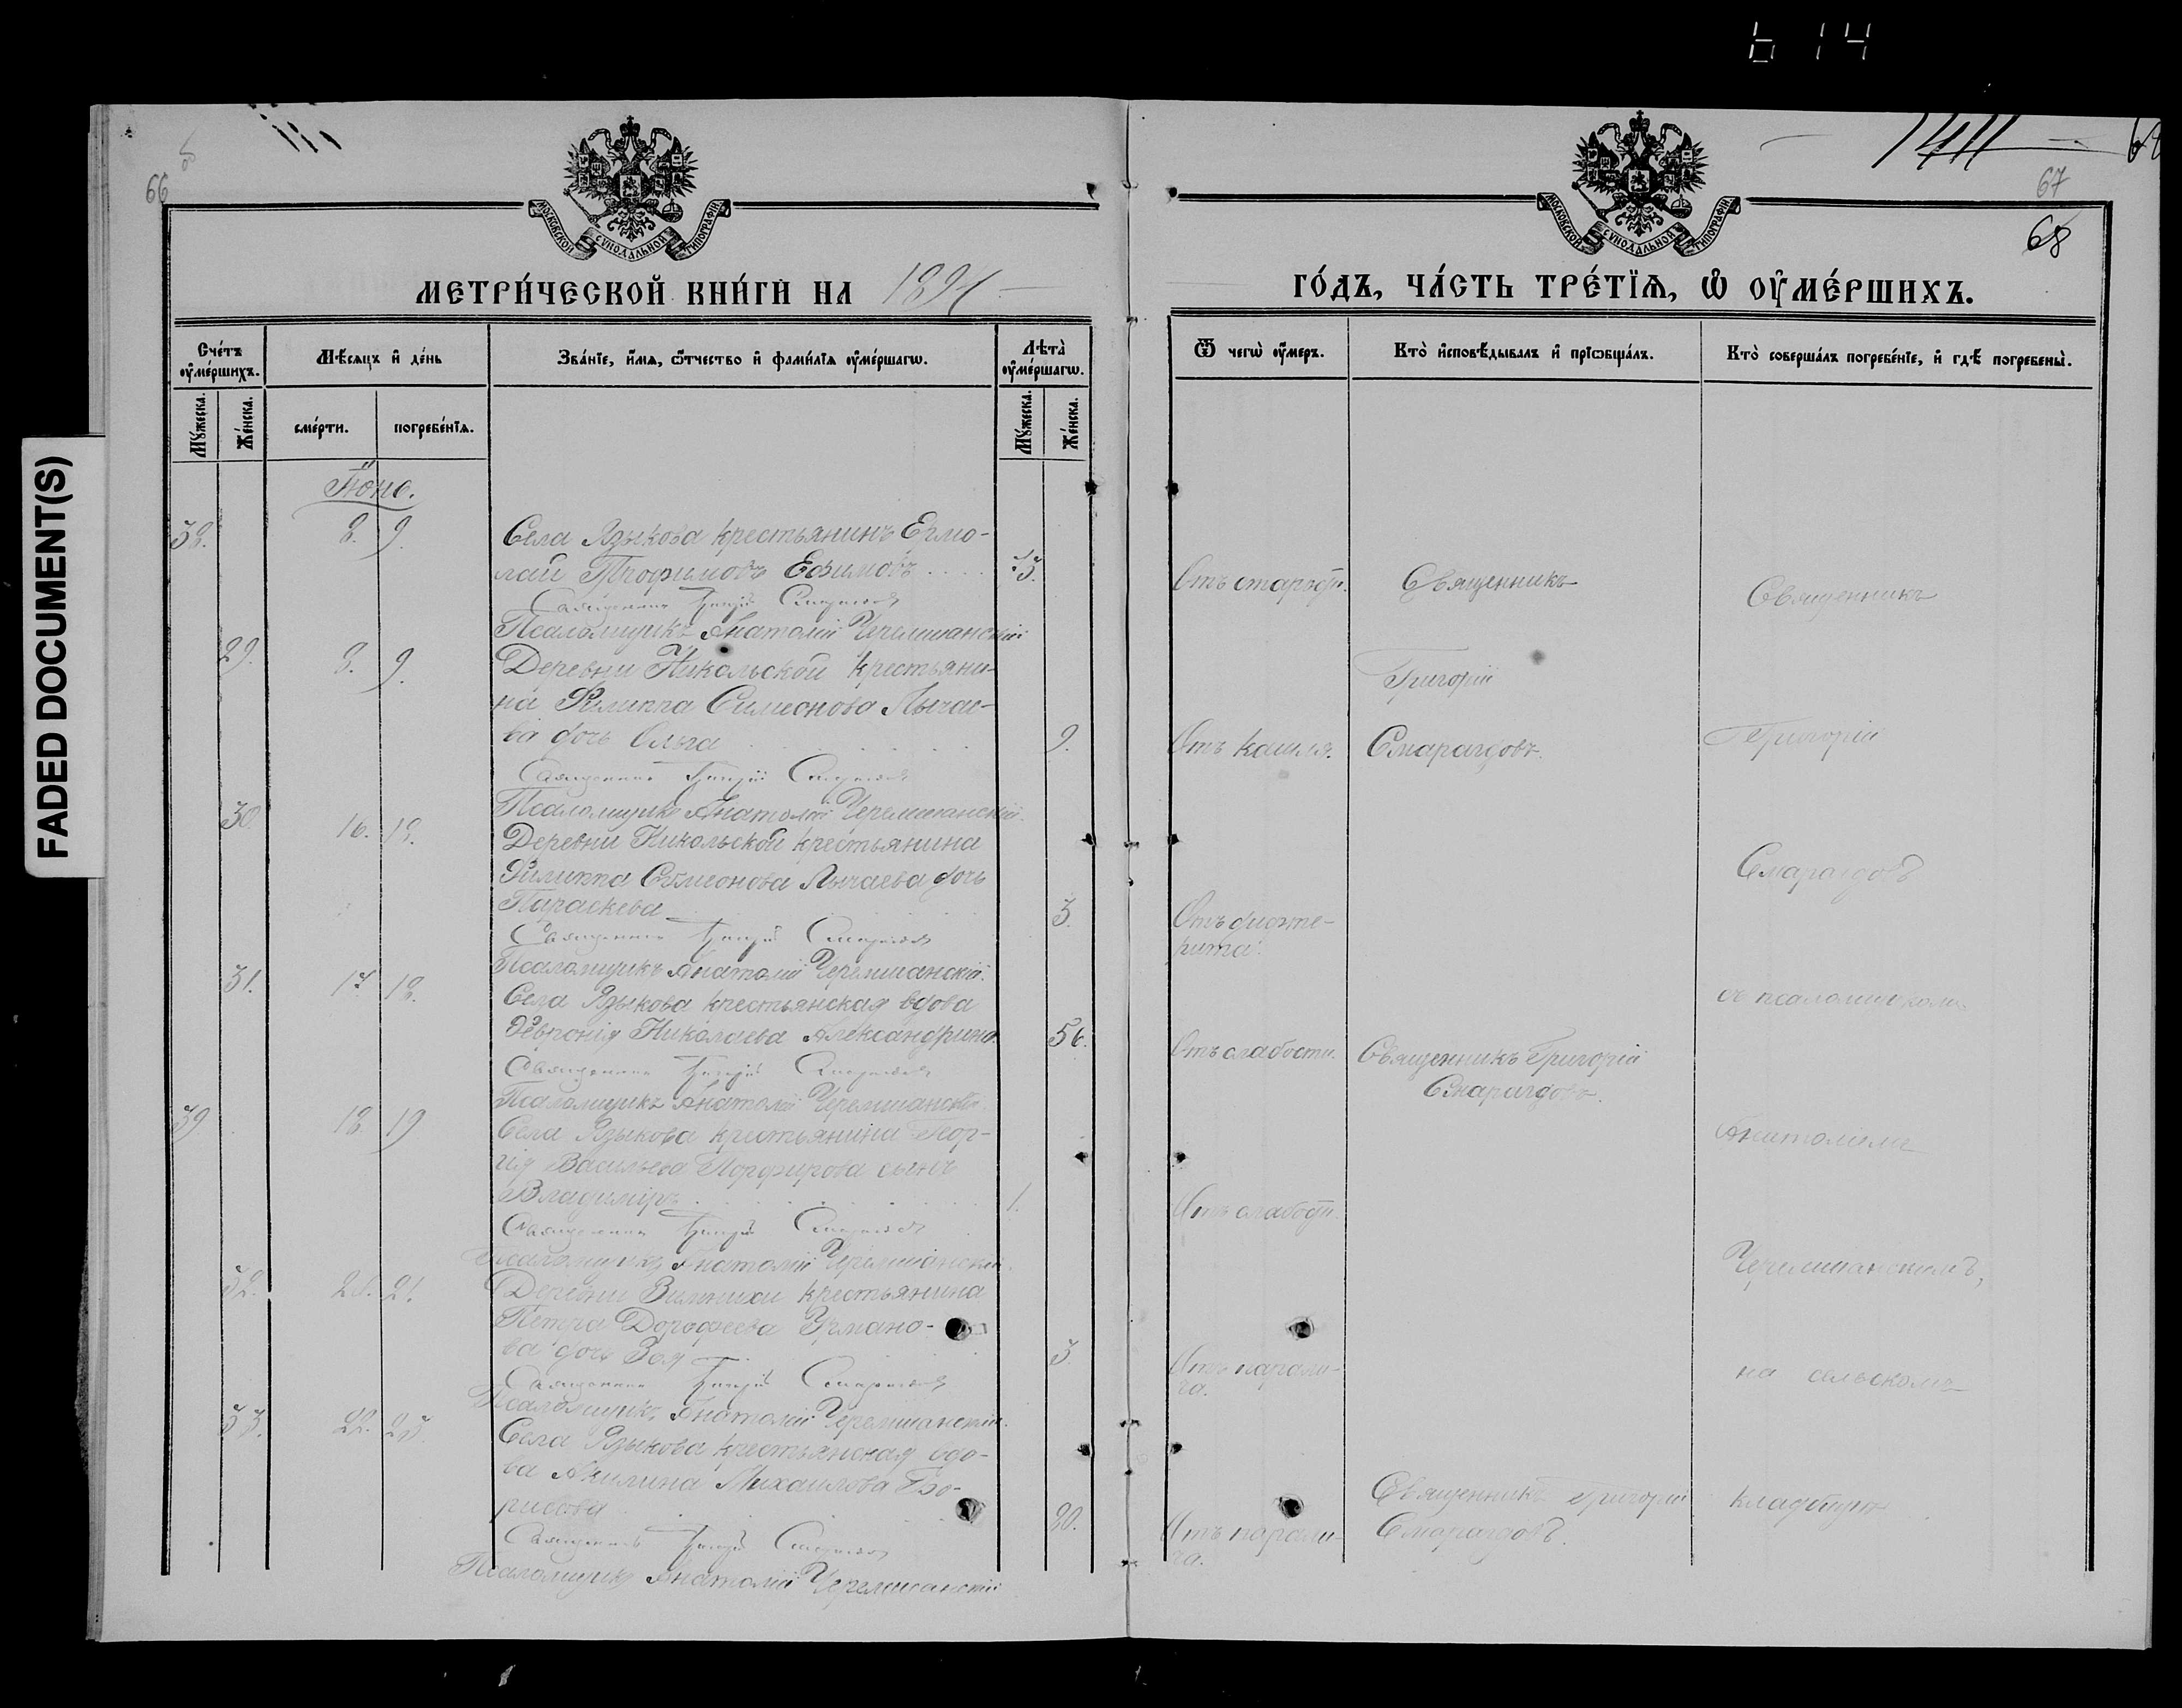 614
FADED DOCUMENT(S)
66
МОСКОВСКОЙ СѴНОДАЛЬНОЙ ТИПОГРАФІИ
МЕТРИ́ЧЕСКОЙ КНИ́ГИ НА 189
Сче́тъ ᲂу҆ме́ршихъ.
Мѣ́сяцъ и҆ де́нь
Зва́нїе, и҆́мя, ѻ҆́тчество и҆ фами́лїя ᲂу҆ме́ршагѡ.
Лѣта̀ ᲂу҆ме́ршагѡ.
Мꙋ́жеска.
Же́нска.
сме́рти.
погребе́нїя.
Мꙋ́жеска.
Же́нска.
38.
8. 9.
Села Языкова крестьянинъ Ермо-
лай Трофимовъ Ефимовъ
Священникъ Григорій Смарагдовъ
Псаломщикъ Анатолій Черемшанскій
29.
8. 9.
Деревни Никольской крестьяни-
на Филиппа Симеонова Лычае-
ва дочь Ольга
9.
Священникъ Григорій Смарагдовъ
Псаломщикъ Анатолій Черемшанскій.
30.
16. 18.
Деревни Никольской крестьянина
Филиппа Симеонова Лычаева дочь
Параскева
3.
Священникъ Григорій Смарагдовъ
Псаломщикъ Анатолій Черемшанскій.
31.
17 18.
Села Языкова крестьянская вдова
Февронія Николаева Александрина.
56.
Священникъ Григорій Смарагдовъ
Псаломщикъ Анатолій Черемшанскій.
39.
18. 19
Села Языкова крестьянина Геор-
гія Васильева Порфирова сынъ
Владиміръ
1.
Священникъ Григорій Смарагдовъ
Псаломщикъ Анатолій Черемшанскій.
32.
20. 21.
Деревни крестьянина
Петра Дорофеева Урмано-
ва дочь Зоя
3
Священникъ Григорій Смарагдовъ
Псаломщикъ Анатолій Черемшанскій.
33.
22. 23.
Села Языкова крестьянская вдо-
ва Акилина Михаилова Бо-
рисова
80.
Священникъ Григорій Смарагдовъ
Псаломщикъ Анатолій Черемшанскій
67
68
МОСКОВСКОЙ СѴНОДАЛЬНОЙ ТИПОГРАФІИ
ГО́ДЪ, ЧА́СТЬ ТРЕ́ТЇЯ, Ѡ҆ ОУ҆МЕ́РШИХЪ.
Ѿ чегѡ̀ ᲂу҆́меръ.
Кто̀ и҆сповѣ́дывалъ и҆ прїѡбща́лъ.
Кто̀ соверша́лъ погребе́нїе, и҆ гдѣ̀ погребены̀.
Отъ старости.
Священникъ
Священникъ
Григорій
Отъ кашля.
Смарагдовъ.
Григорій
Смарагдовъ
Отъ дифте-
рита.
съ псаломщикомъ
Отъ слабости.
Священникъ Григорій
Смарагдовъ.
Анатоліемъ
Отъ слабости.
Черемшанскимъ,
Отъ парали-
ча.
на сельскомъ
Священникъ Григорій
кладбищѣ
Отъ парали-
ча.
Смарагдовъ.